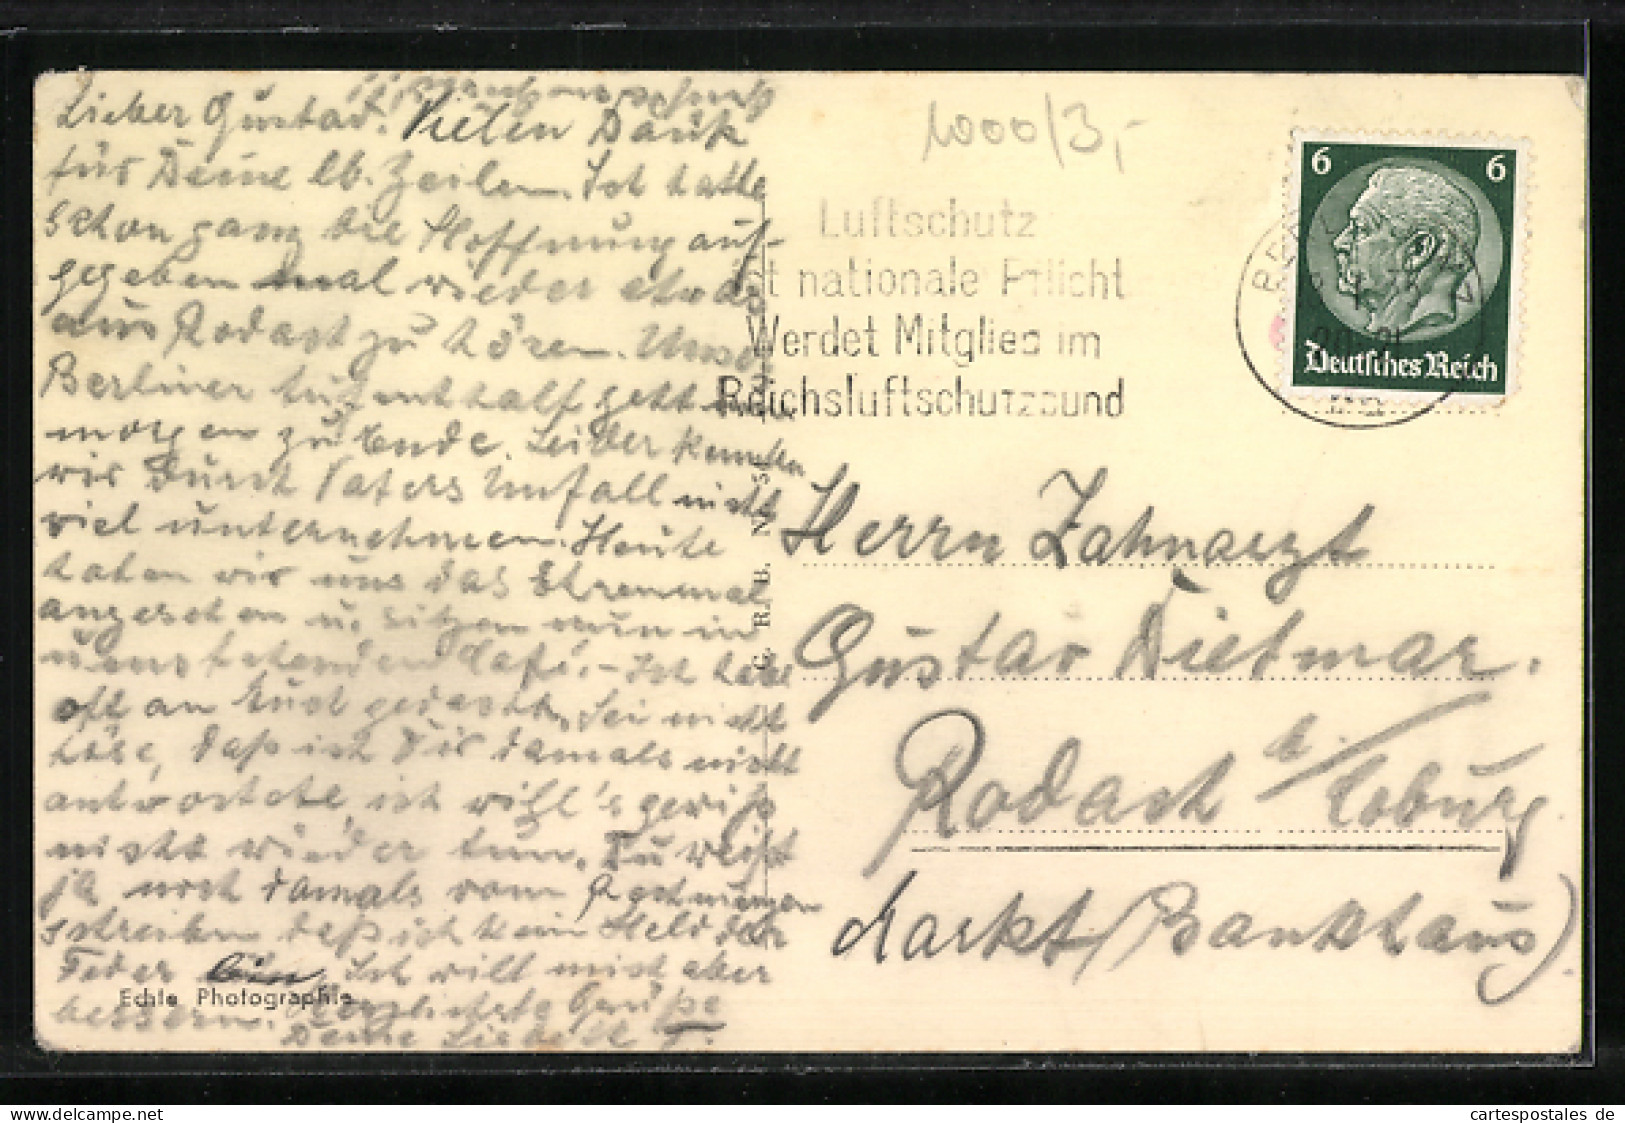 Lieber Gustav. Vielen Dank
für Deine lb. Zeilen. Ich hatte
schon ganz die Hoffnung auf-
gegeben mal wieder etwas
aus Rodach zu hören. Unser
Berliner Aufenthalt geht
morgen zu Ende. Leider konnten
wir durch Vaters Unfall nicht
viel unternehmen. Heute
haben wir uns das Ehrenmal
angesehen u. sitzen nun in
Café. – Ich habe
oft an Euch gedacht. Sei nicht
böse, daß ich Dir damals nicht
antwortete, ich will's gewiß
nicht wieder tun. Du weißt
ja noch damals vom
schreiben daß ich kein Held der
Feder bin. Ich will mich aber
bessern. Herzlichste Grüße
Deine
Echte Photographie
1000/3,-
Luftschutz
ist nationale Pflicht
Werdet Mitglied im
Reichsluftschutzbund
6 6
Deutsches Reich
Herrn Zahnarzt
Gustav Dietmar.
Rodach b/Coburg
Markt (Bankhaus)
cartespostales de